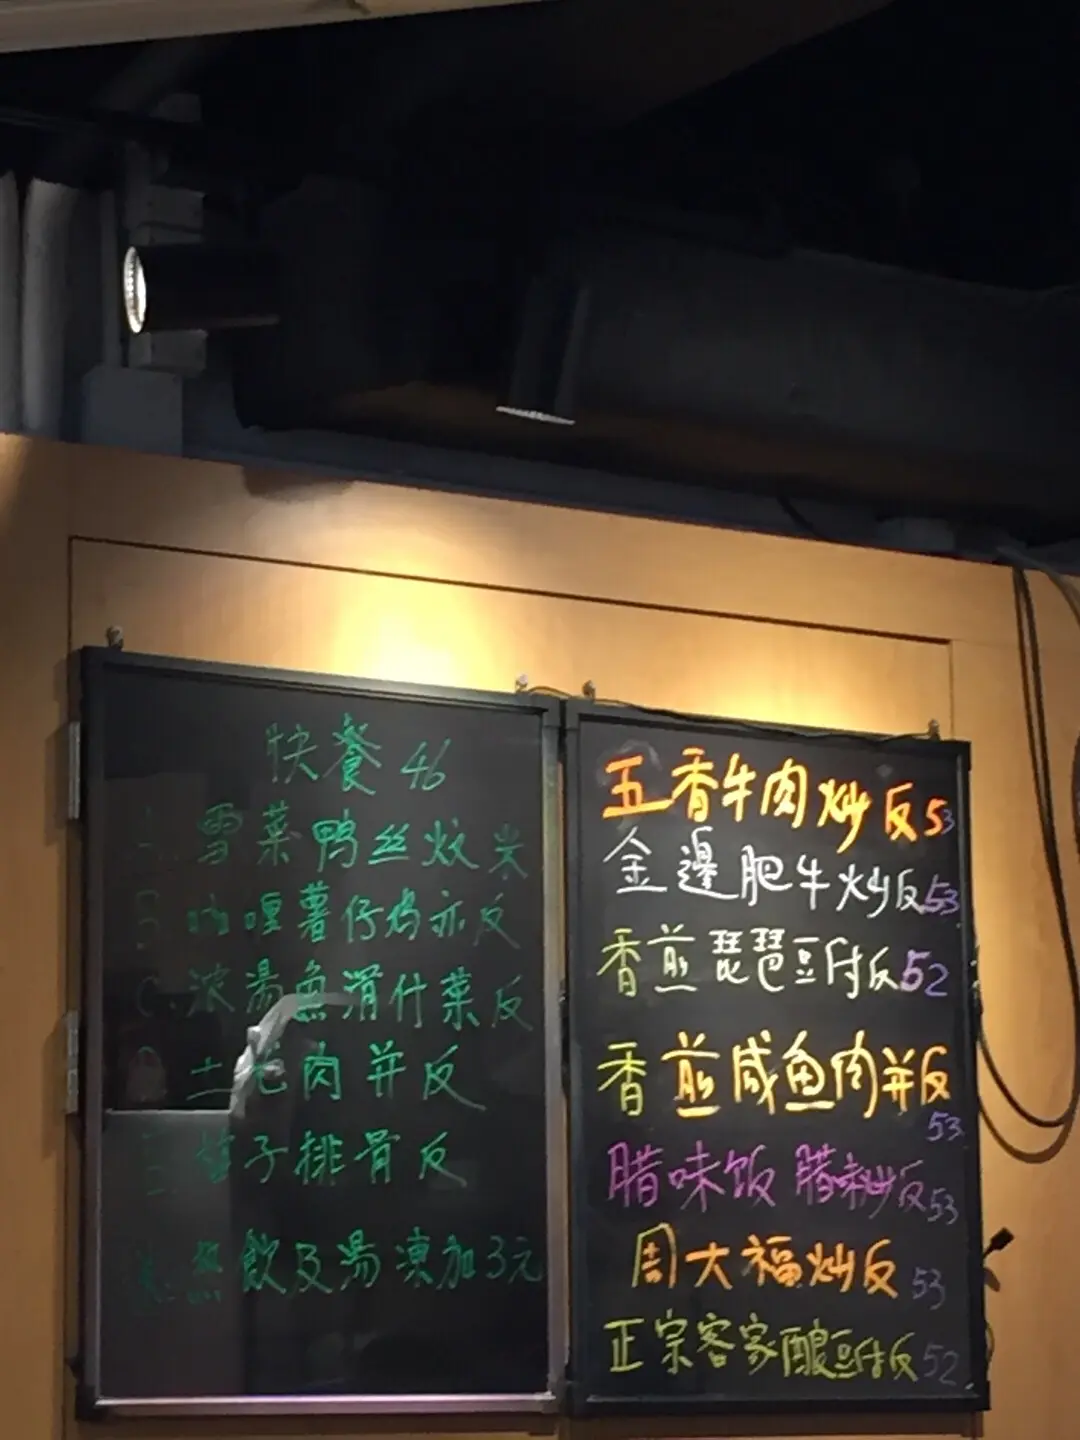 快餐 46
A. 雪菜鸭丝炆米
B. 咖喱薯仔鸡亦反
C. 浓汤魚滑什菜反
D. 土尤肉并反
E. 子排骨反
熱飲及湯凍加3元
五香牛肉炒反53
金邊肥牛炒反53
香煎琵琶豆付反52
香煎咸魚肉并反
53
腊味饭 腊味炒反53
周大福炒反 53
正宗客家酿豆付反52